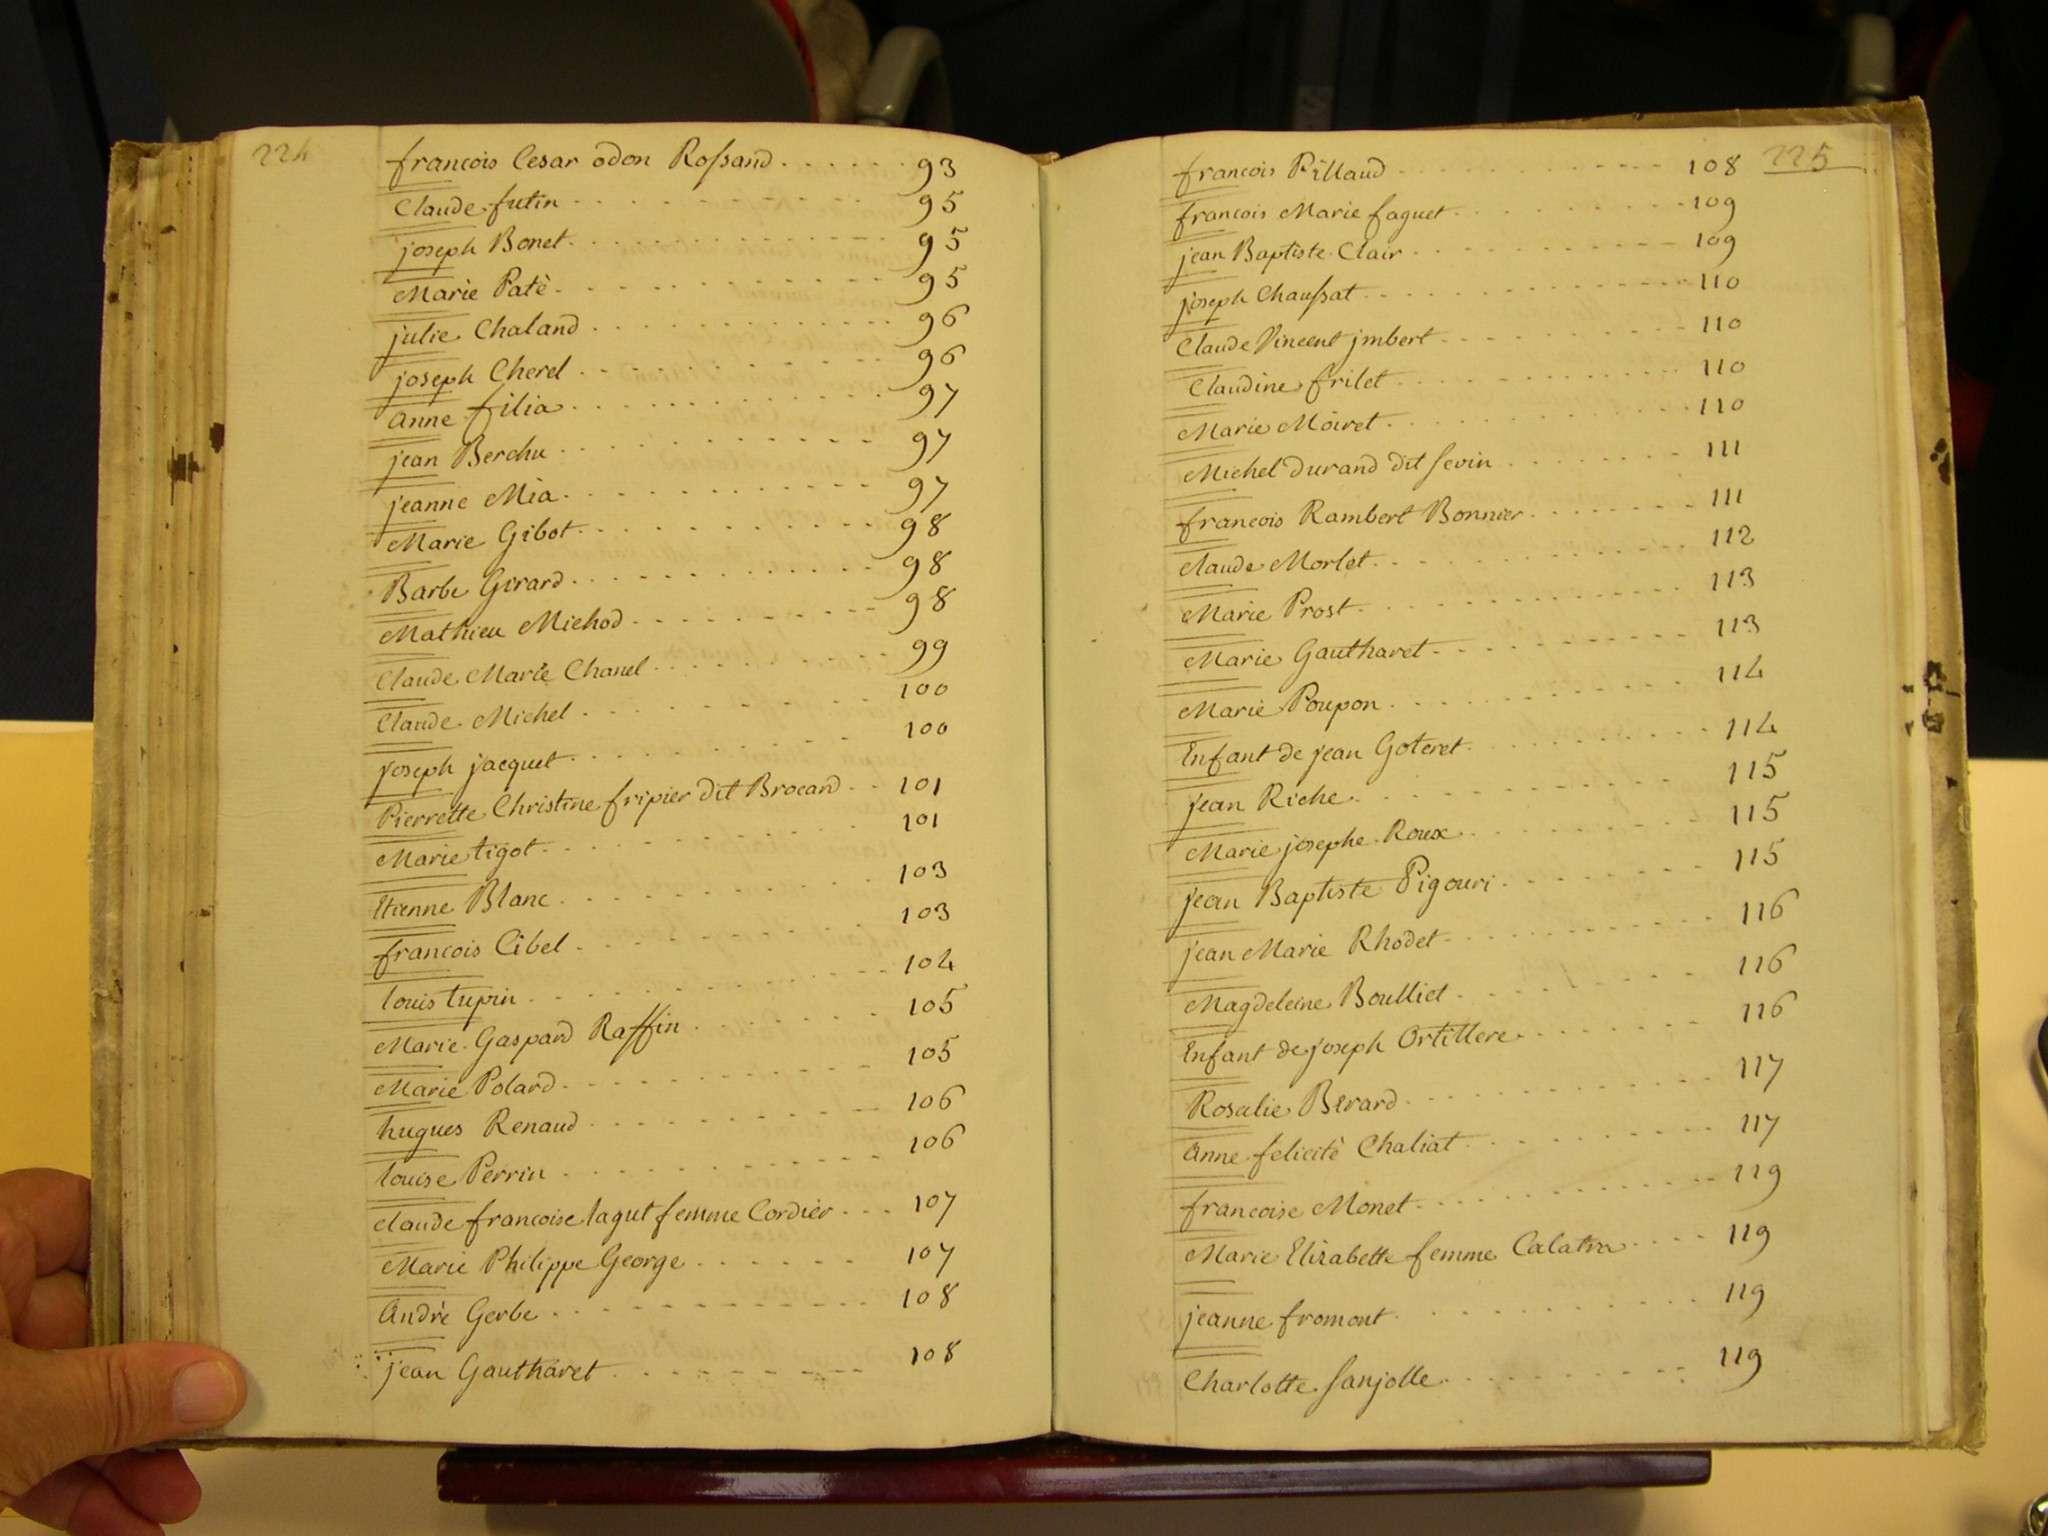 224
francois Cesar odon Rossand 93
Claude futin 95
joseph Bonet 95
Marie Patè 95
julie Chaland 96
joseph Cherel 96
anne filia 97
jean Berchu 97
jeanne Mia 97
Marie Gibot 98
Barbe Girard 98
Mathieu Michod 98
Claude Marie Chanel 99
Claude Michel 100
joseph jacquet 100
Pierrette Christine fripier dit Brocand 101
Marie tigot 101
Etienne Blanc 103
francois Cibel 103
louis tupin 104
Marie Gaspard Raffin 105
Marie Polard 105
hugues Renaud 106
louise Perrin 106
claude francoise lagut femme Cordier 107
Marie Philippe George 107
andrè Gerbe 108
jean Gautharet 108
225
francois Rillaud 108
francois Marie faguet 109
jean Baptiste Clair 109
joseph Chaussat 110
Claude Vincent jmbert 110
Claudine frilet 110
Marie Moiret 110
Michel durand dit sevin 111
francois Rambert Bonnier 111
claude Morlet 112
Marie Prost 113
Marie Gautharet 113
Marie Poupon 114
Enfant de jean Goteret 114
jean Riche 115
Marie josephe Roux 115
jean Baptiste Pigouri 115
jean Marie Rhodet 116
Magdeleine Boulliet 116
Enfant de joseph Ortillere 116
Rosalie Berard 117
anne felicitè Chaliat 117
francoise Monet 119
Marie Elizabette femme 119
jeanne fromont 119
Charlotte sanjolle 119